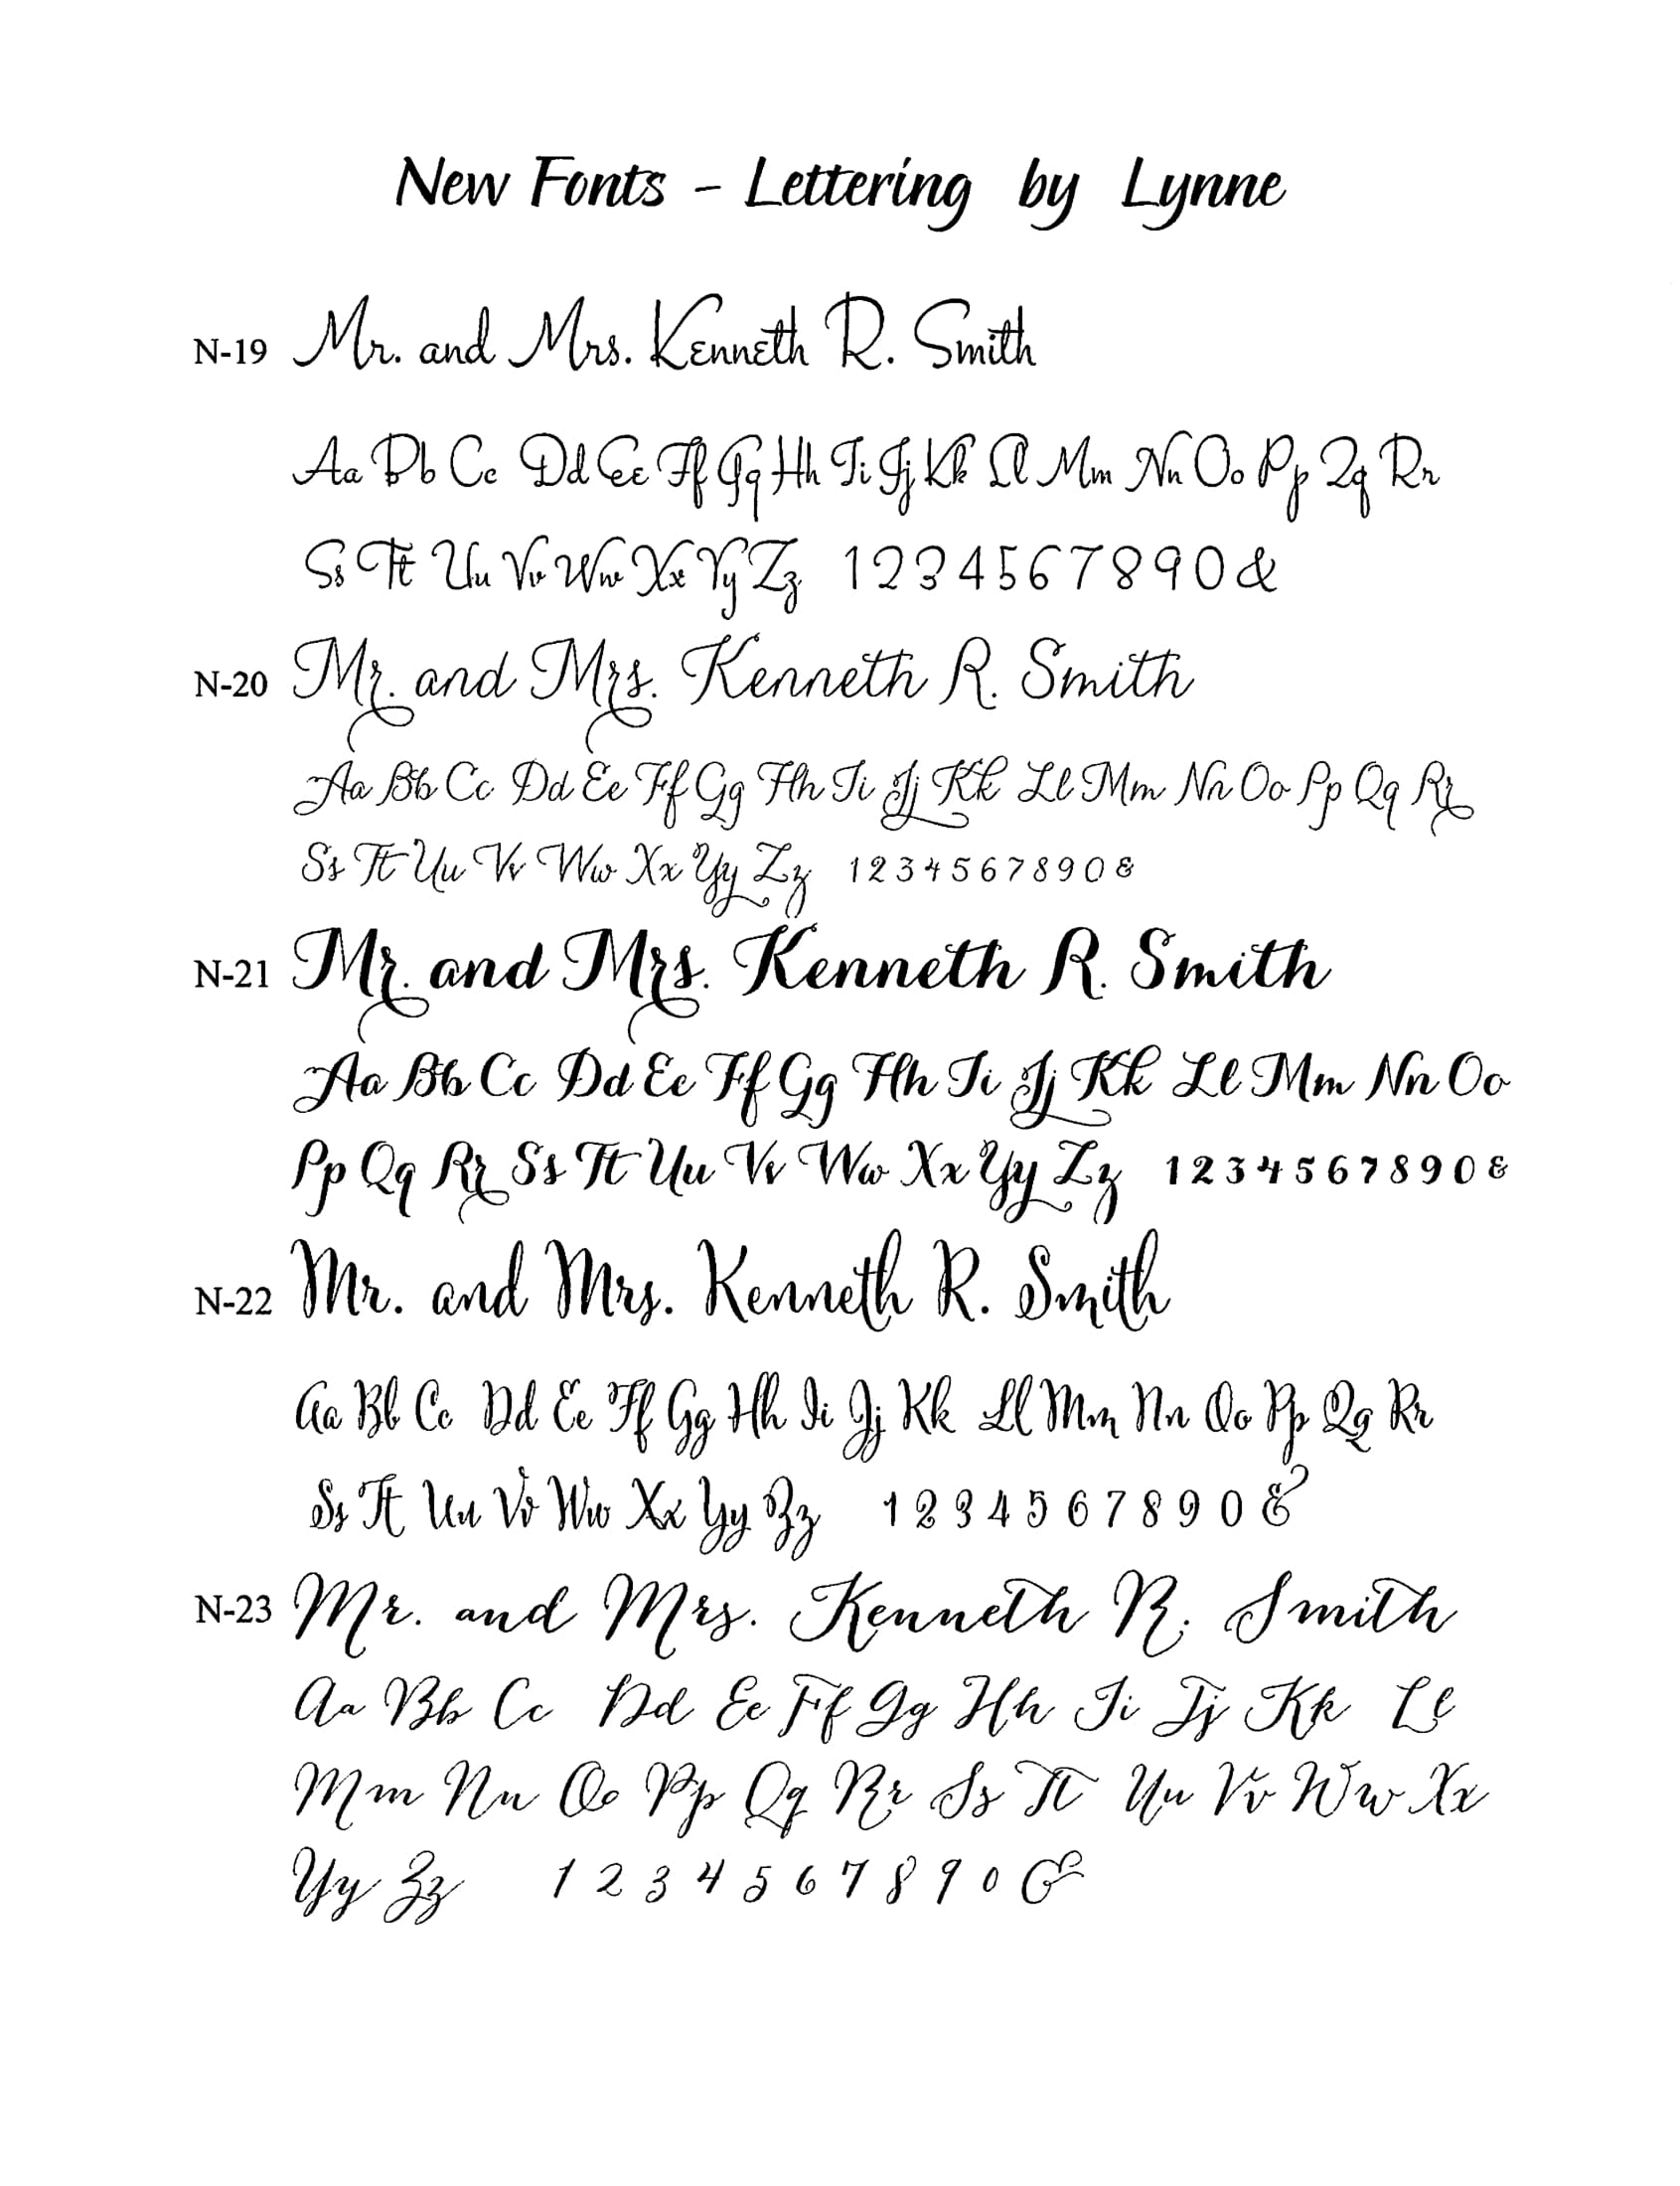 New Fonts - Lettering by Lynne
N-19 Mr. and Mrs. Kenneth R. Smith
Aa Bb Cc Dd Ee Ff Gg Hh Ii Jj Kk Ll Mm Nn Oo Pp Qq Rr
Ss Tt Uu Vv Ww Xx Yy Zz 1234567890&
N-20 Mr. and Mrs. Kenneth R. Smith
Aa Bb Cc Dd Ee Ff Gg Hh Ii Jj Kk Ll Mm Nn Oo Pp Qq Rr
Ss Tt Uu Vv Ww Xx Yy Zz 1234567890&
N-21 Mr. and Mrs. Kenneth R. Smith
Aa Bb Cc Dd Ee Ff Gg Hh Ii Jj Kk Ll Mm Nn Oo
Pp Qq Rr Ss Tt Uu Vv Ww Xx Yy Zz 1234567890&
N-22 Mr. and Mrs. Kenneth R. Smith
Aa Bb Cc Dd Ee Ff Gg Hh Ii Jj Kk Ll Mm Nn Oo Pp Qq Rr
Ss Tt Uu Vv Ww Xx Yy Zz 1 2 3 4 5 6 7 8 9 0 &
N-23 Mr. and Mrs. Kenneth R. Smith
Aa Bb Cc Dd Ee Ff Gg Hh Ii Jj Kk Ll
Mm Nn Oo Pp Qq Rr Ss Tt Uu Vv Ww Xx
Yy Zz 1 2 3 4 5 6 7 8 9 0 &